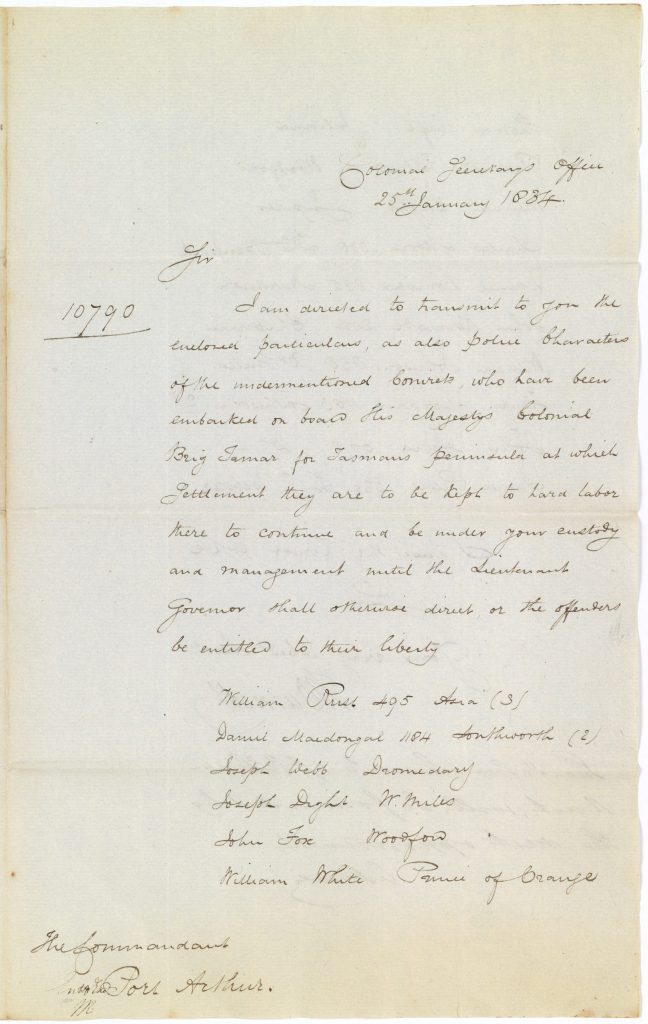 Colonial Secretarys Office
25th January 1834.
Sir
10790
I am directed to transmit to you the
enclosed particulars, as also police Characters
of the undermentioned Convicts, who have been
embarked on board His Majestys Colonial
Brig Tamar for Tasmans peninsula at which
Settlement they are to be kept to hard labor
there to continue and be under your custody
and management until the Lieutenant
Governor shall otherwise direct or the offenders
be entitled to their liberty
William Rust 495 Asia (3)
Daniel Macdongal 1184 Southworth (2)
Joseph Webb Dromedary
Joseph Dight W. Miles
John Fox Woodford
William White Prince of Orange
The Commandant
Port Arthur.